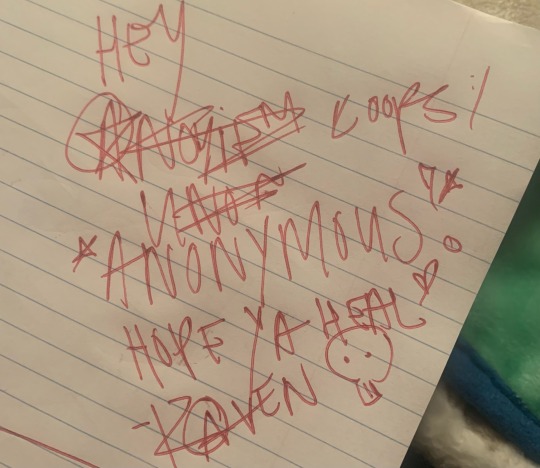 HEY
OOPS!
*ANONYMOUS*
HOPE YA HEAL
-RAVEN